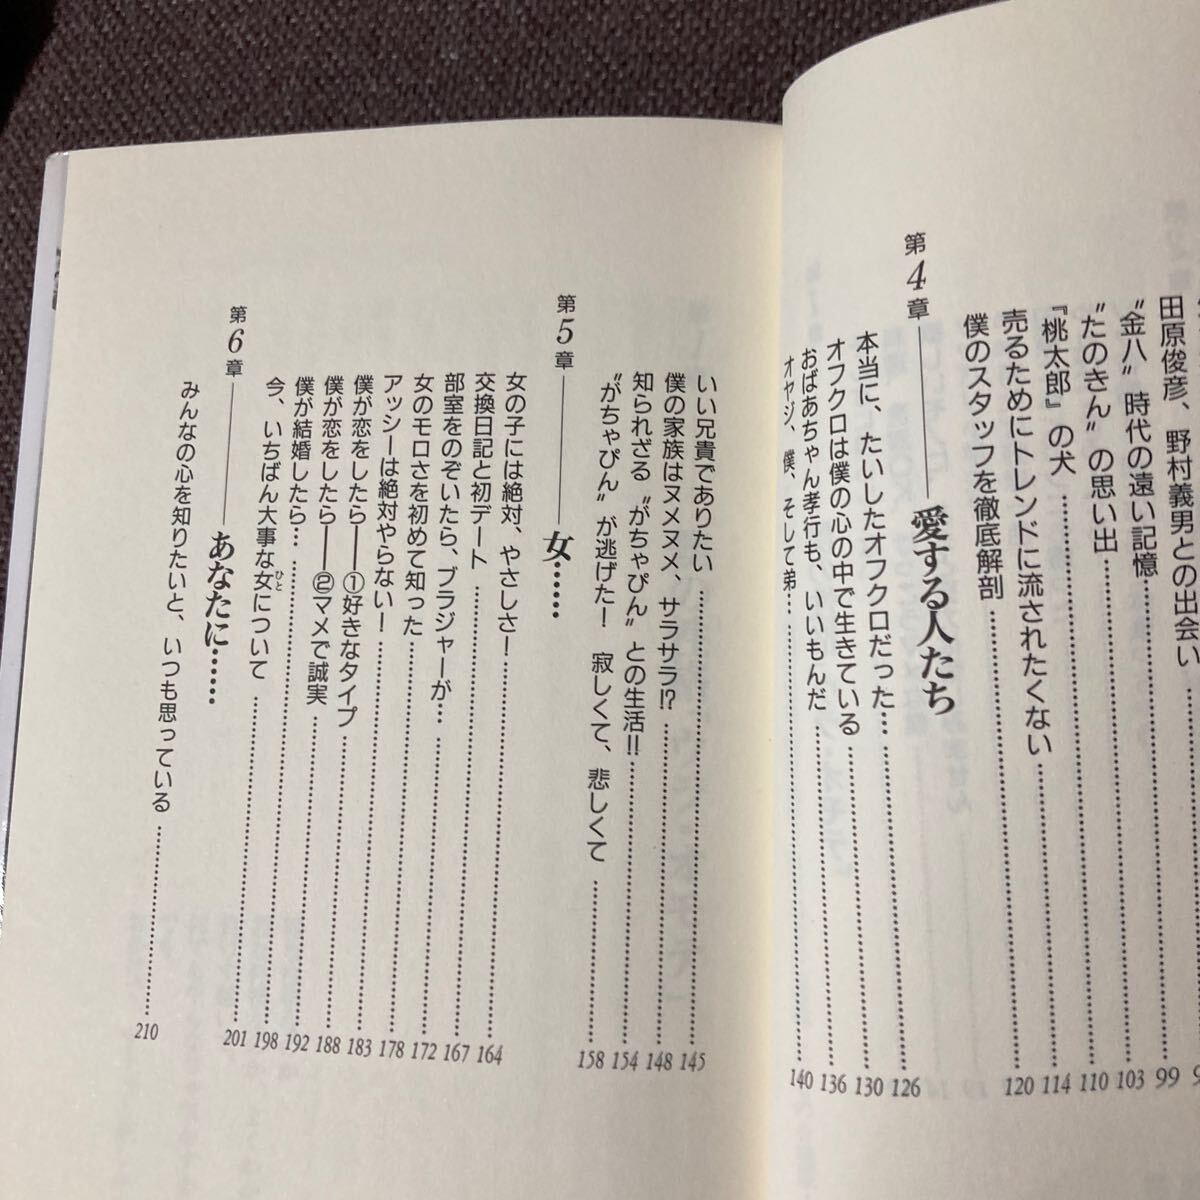 田原俊彦、野村義男との出会い……99
“金八”時代の遠い記憶……103
“たのきん”の思い出……110
『桃太郎』の犬……114
売るためにトレンドに流されたくない……120
僕のスタッフを徹底解剖
第4章――愛する人たち
本当に、たいしたオフクロだった………126
オフクロは僕の心の中で生きている……130
おばあちゃん孝行も、いいもんだ……136
オヤジ、僕、そして弟………140
いい兄貴でありたい……145
僕の家族はヌメヌメ、サラサラ!?……148
知られざる“がちゃぴん”との生活!!……154
“がちゃぴん”が逃げた！ 寂しくて、悲しくて……158
第5章――女……
女の子には絶対、やさしさ！
交換日記と初デート……164
部室をのぞいたら、ブラジャーが………167
女のモロさを初めて知った……172
アッシーは絶対やらない！……178
僕が恋をしたら――①好きなタイプ……183
僕が恋をしたら――②マメで誠実……188
僕が結婚したら………192
今、いちばん大事な女(ひと)について……198
201
第6章――あなたに……
みんなの心を知りたいと、いつも思っている……210